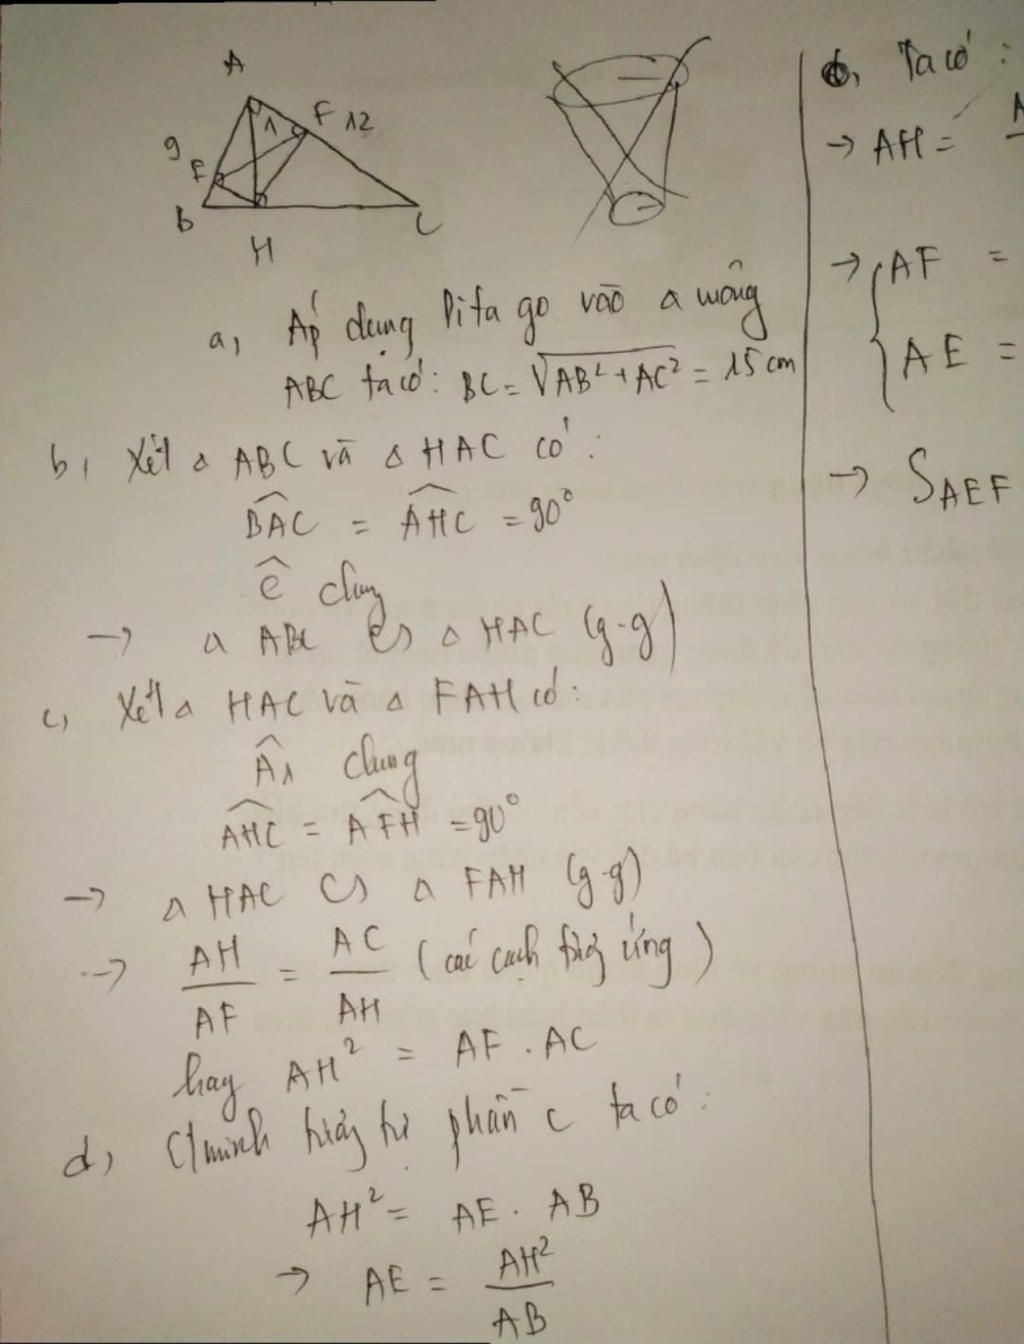 A
F 12
1
9
E
B
C
H
a, Áp dụng Pitago vào Δ vuông
ABC ta có: BC = √AB² + AC² = 15 cm
b, Xét Δ ABC và Δ HAC có:
BAC = AHC = 90°
C chung
→ Δ ABC ∽ Δ HAC (g-g)
c, Xét Δ HAC và Δ FAH có:
A1 chung
AHC = AFH = 90°
→ Δ HAC ∽ Δ FAH (g-g)
→ AH/AF = AC/AH (các cạnh tương ứng)
hay AH² = AF . AC
d, C/minh tương tự phần c ta có:
AH² = AE . AB
→ AE = AH²/AB
Ta có:
→ AH =
→ { AF =
AE =
→ SAEF